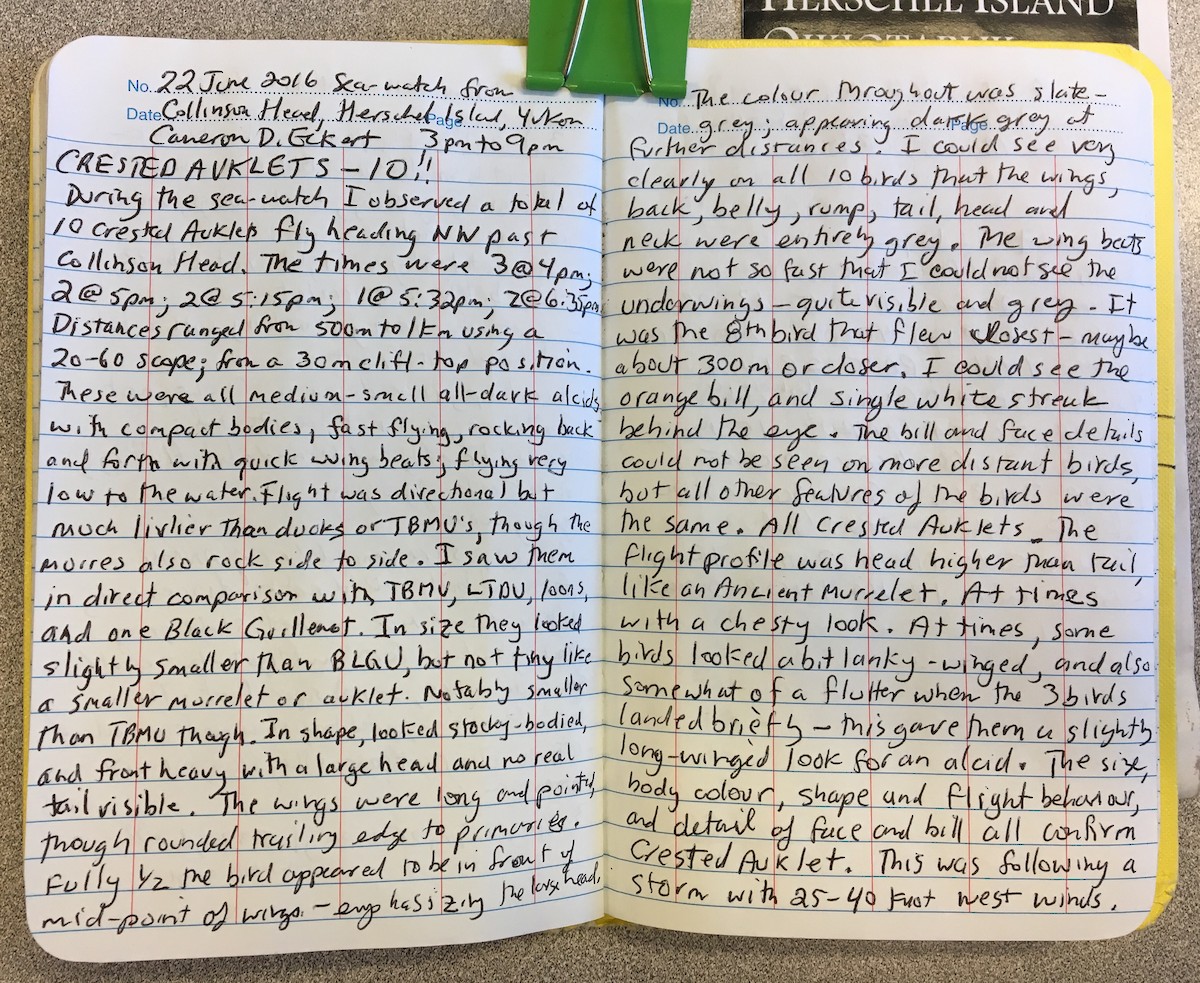 HERSCHEL ISLAND
QIKIQTARUK
No. 22 June 2016 Sea-watch from
Date Collinson Head, Herschel Island, Yukon
Page
Cameron D. Eckert 3pm to 9pm
CRESTED AUKLETS - 10!!
During the sea-watch I observed a total of
10 Crested Auklets fly heading NW past
Collinson Head. The times were 3@4pm;
2@5pm; 2@5:15pm; 1@5:32pm; 2@6:35pm
Distances ranged from 500m to 1km using a
20-60 scope; from a 30m cliff-top position.
These were all medium-small all-dark alcids
with compact bodies, fast flying, rocking back
and forth with quick wing beats; flying very
low to the water. Flight was directional but
much livlier than ducks or TBMU's, though the
murres also rock side to side. I saw them
in direct comparison with TBMU, LTDU, loons,
and one Black Guillemot. In size they looked
slightly smaller than BLGU, but not tiny like
a smaller murrelet or auklet. Notably smaller
than TBMU though. In shape, looked stocky-bodied,
and front heavy with a large head and no real
tail visible. The wings were long and pointed,
though rounded trailing edge to primaries.
Fully 1/2 the bird appeared to be in front of
mid-point of wings. - emphasizing the large head.
No. The colour throughout was slate-
Date grey; appearing dark grey at
Page
further distances. I could see very
clearly on all 10 birds that the wings,
back, belly, rump, tail, head and
neck were entirely grey. The wing beats
were not so fast that I could not see the
underwings - quite visible and grey. It
was the 8th bird that flew closest - maybe
about 300m or closer. I could see the
orange bill, and single white streak
behind the eye. The bill and face details
could not be seen on more distant birds,
but all other features of the birds were
the same. All Crested Auklets. The
flight profile was head higher than tail,
like an Ancient Murrelet. At times
with a chesty look. At times, some
birds looked a bit lanky-winged, and also
somewhat of a flutter when the 3 birds
landed briefly - this gave them a slightly
long-winged look for an alcid. The size,
body colour, shape and flight behaviour,
and detail of face and bill all confirm
Crested Auklet. This was following a
storm with 25-40 knot west winds.